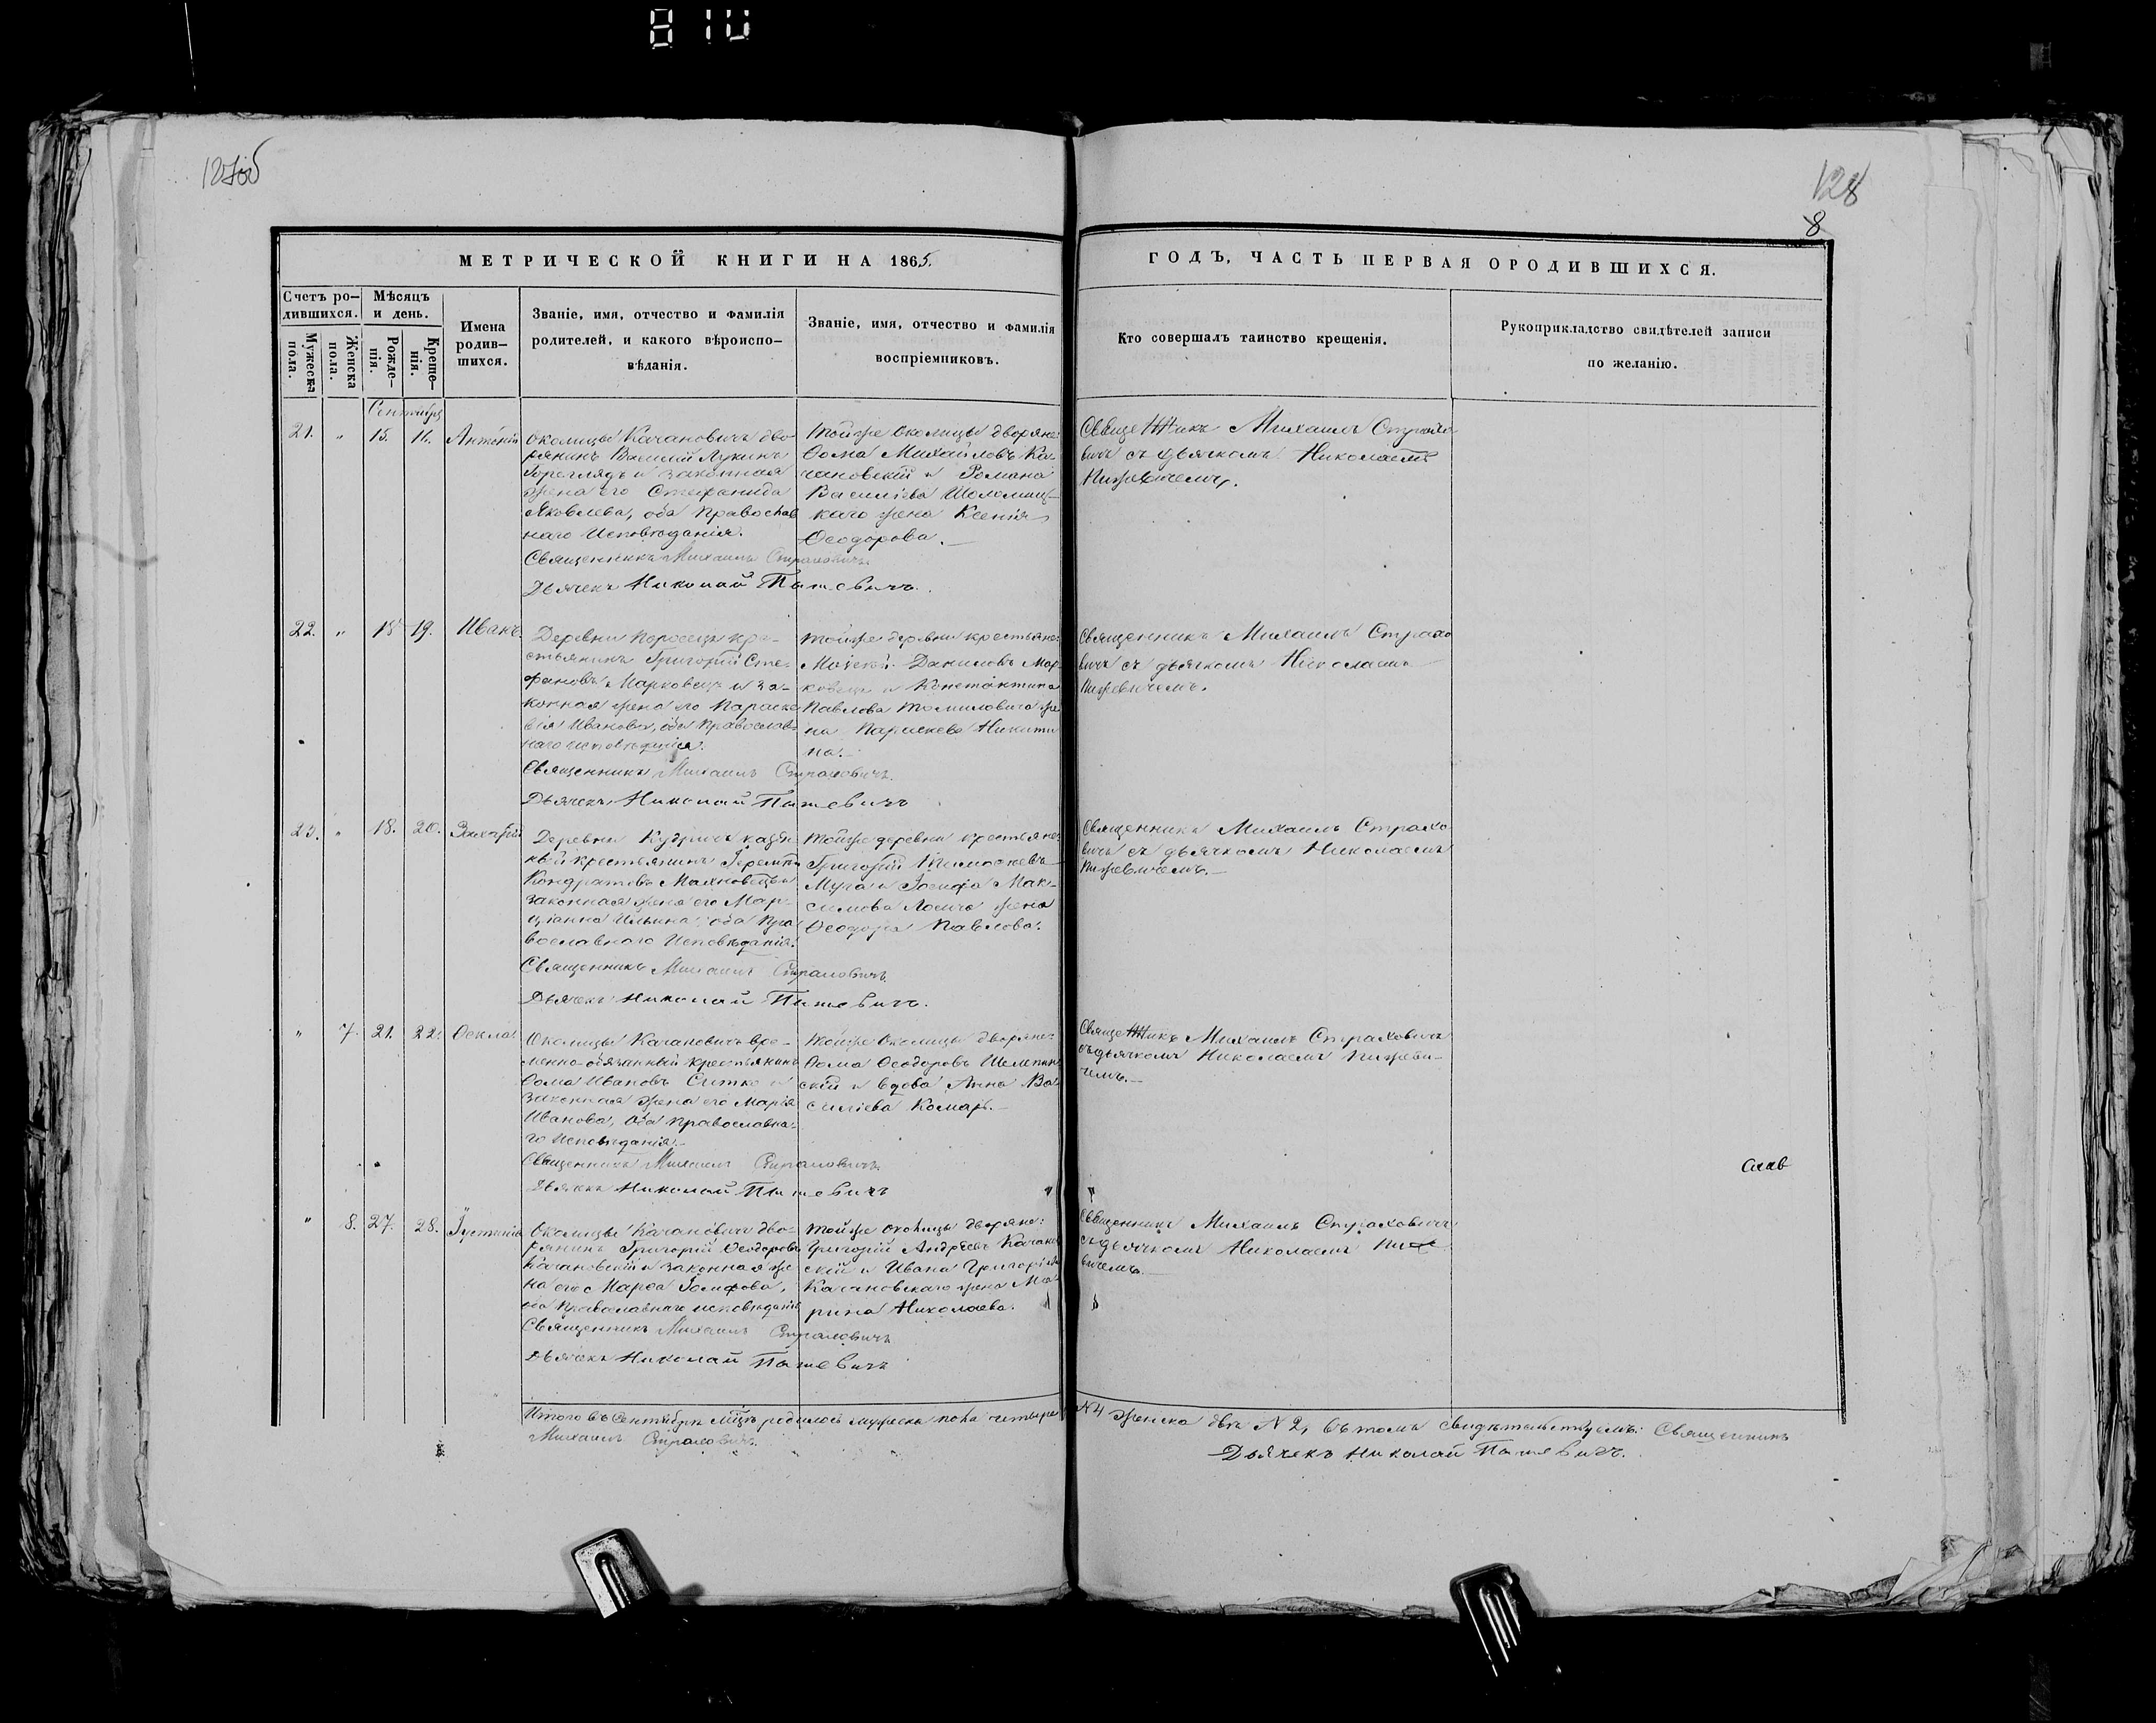 810
127об
128
8
МЕТРИЧЕСКОЙ КНИГИ НА 1865.
ГОДЪ, ЧАСТЬ ПЕРВАЯ О РОДИВШИХСЯ.
Счетъ ро-
дившихся.
Мужеска
пола.
Женска
пола.
Мѣсяцъ
и день.
Рожде-
нія.
Креще-
нія.
Имена
родив-
шихся.
Званіе, имя, отчество и фамилія
родителей, и какого вѣроиспо-
вѣданія.
Званіе, имя, отчество и фамилія
воспріемниковъ.
Кто совершалъ таинство крещенія.
Рукоприкладство свидѣтелей записи
по желанію.
Сентябрь
21. " 15. Антоній
Околицы Качановичъ дво-
рянинъ Василій Лукинъ
Гореглядъ и законная
жена его Стефанида
Яковлева, оба Православ
наго Исповѣданія.
Священникъ Михаилъ Страховичъ.
Дьячекъ Николай Пыжевичъ.
Тойже Околицы дворяне:
Ѳома Михайловъ Ка-
чановскій и Романа
Василіева Шоломиц-
каго жена Ксенія
Ѳеодорова.
Священникъ Михаилъ Страхо
вичъ съ дьячкомъ Николаемъ
Пыжевичемъ.
22. " 19. Иванъ.
Деревни кре-
стьянинъ Григорій Сте-
фановъ Марковецъ и за-
конная жена его Параске
вія Иванова, оба Православ-
наго исповѣданія.
Священникъ Михаилъ Страховичъ.
Дьячекъ Николай Пыжевичъ
Тойже деревни крестьяне:
Моисей Даниловъ Мар-
ковецъ и Константина
Павлова Томиловича же
на Параскева Никити
на.
Священникъ Михаилъ Страхо
вичъ съ дьячкомъ Николаемъ
Пыжевичемъ.
23. " 18. 20. Захарій
Деревни Кудричъ казён
ный крестьянинъ Іеремія
Кондратовъ Махновецъ и
законная жена его Мар-
ціанна Ильина, оба Пра
вославнаго Исповѣданія.
Священникъ Михаилъ Страховичъ.
Дьячекъ Николай Пыжевичъ.
Тойже деревни крестьяне:
Григорій Тимоѳеевъ
Муха и Іосифа Мак-
симова жена
Ѳеодора Павлова.
Священникъ Михаилъ Страхо-
вичъ съ дьячкомъ Николаемъ
Пыжевичемъ.
" 7. 21. 22. Ѳекла.
Околицы Качановичъ вре-
менно-обязанный крестьянинъ
Ѳома Ивановъ Ситко и
законная жена его Марія
Иванова, оба православна-
го исповѣданія.
Священникъ Михаилъ Страховичъ.
Дьячекъ Николай Пыжевичъ
Тойже Околицы дворяне:
Ѳома Ѳеодоровъ Шелепин
скій и вдова Анна Ва-
силіева Комаръ.
Священникъ Михаилъ Страховичъ
съ дьячкомъ Николаемъ Пыжеви-
чемъ.
" 8. 27. 28. Іустинія
Околицы Качановичъ дво-
рянинъ Григорій Ѳеодоровъ
Качановскій и законная же
на его Марѳа Іосифова,
оба Православнаго исповѣданія
Священникъ Михаилъ Страховичъ
Дьячекъ Николай Пыжевичъ
Тойже околицы дворяне:
Григорій Андреевъ Качанов
скій и Ивана Григоріева
Качановскаго жена Ма-
рина Николаева.
Священникъ Михаилъ Страховичъ
съ дьячкомъ Николаемъ Пыже-
вичемъ.
Итого въ Сентябрѣ мцѣ родилось мужеска пола четыре N 4 женска двѣ N 2, въ томъ свидѣтельствуемъ: Священникъ
Михаилъ Страховичъ.
Дьячекъ Николай Пыжевичъ.